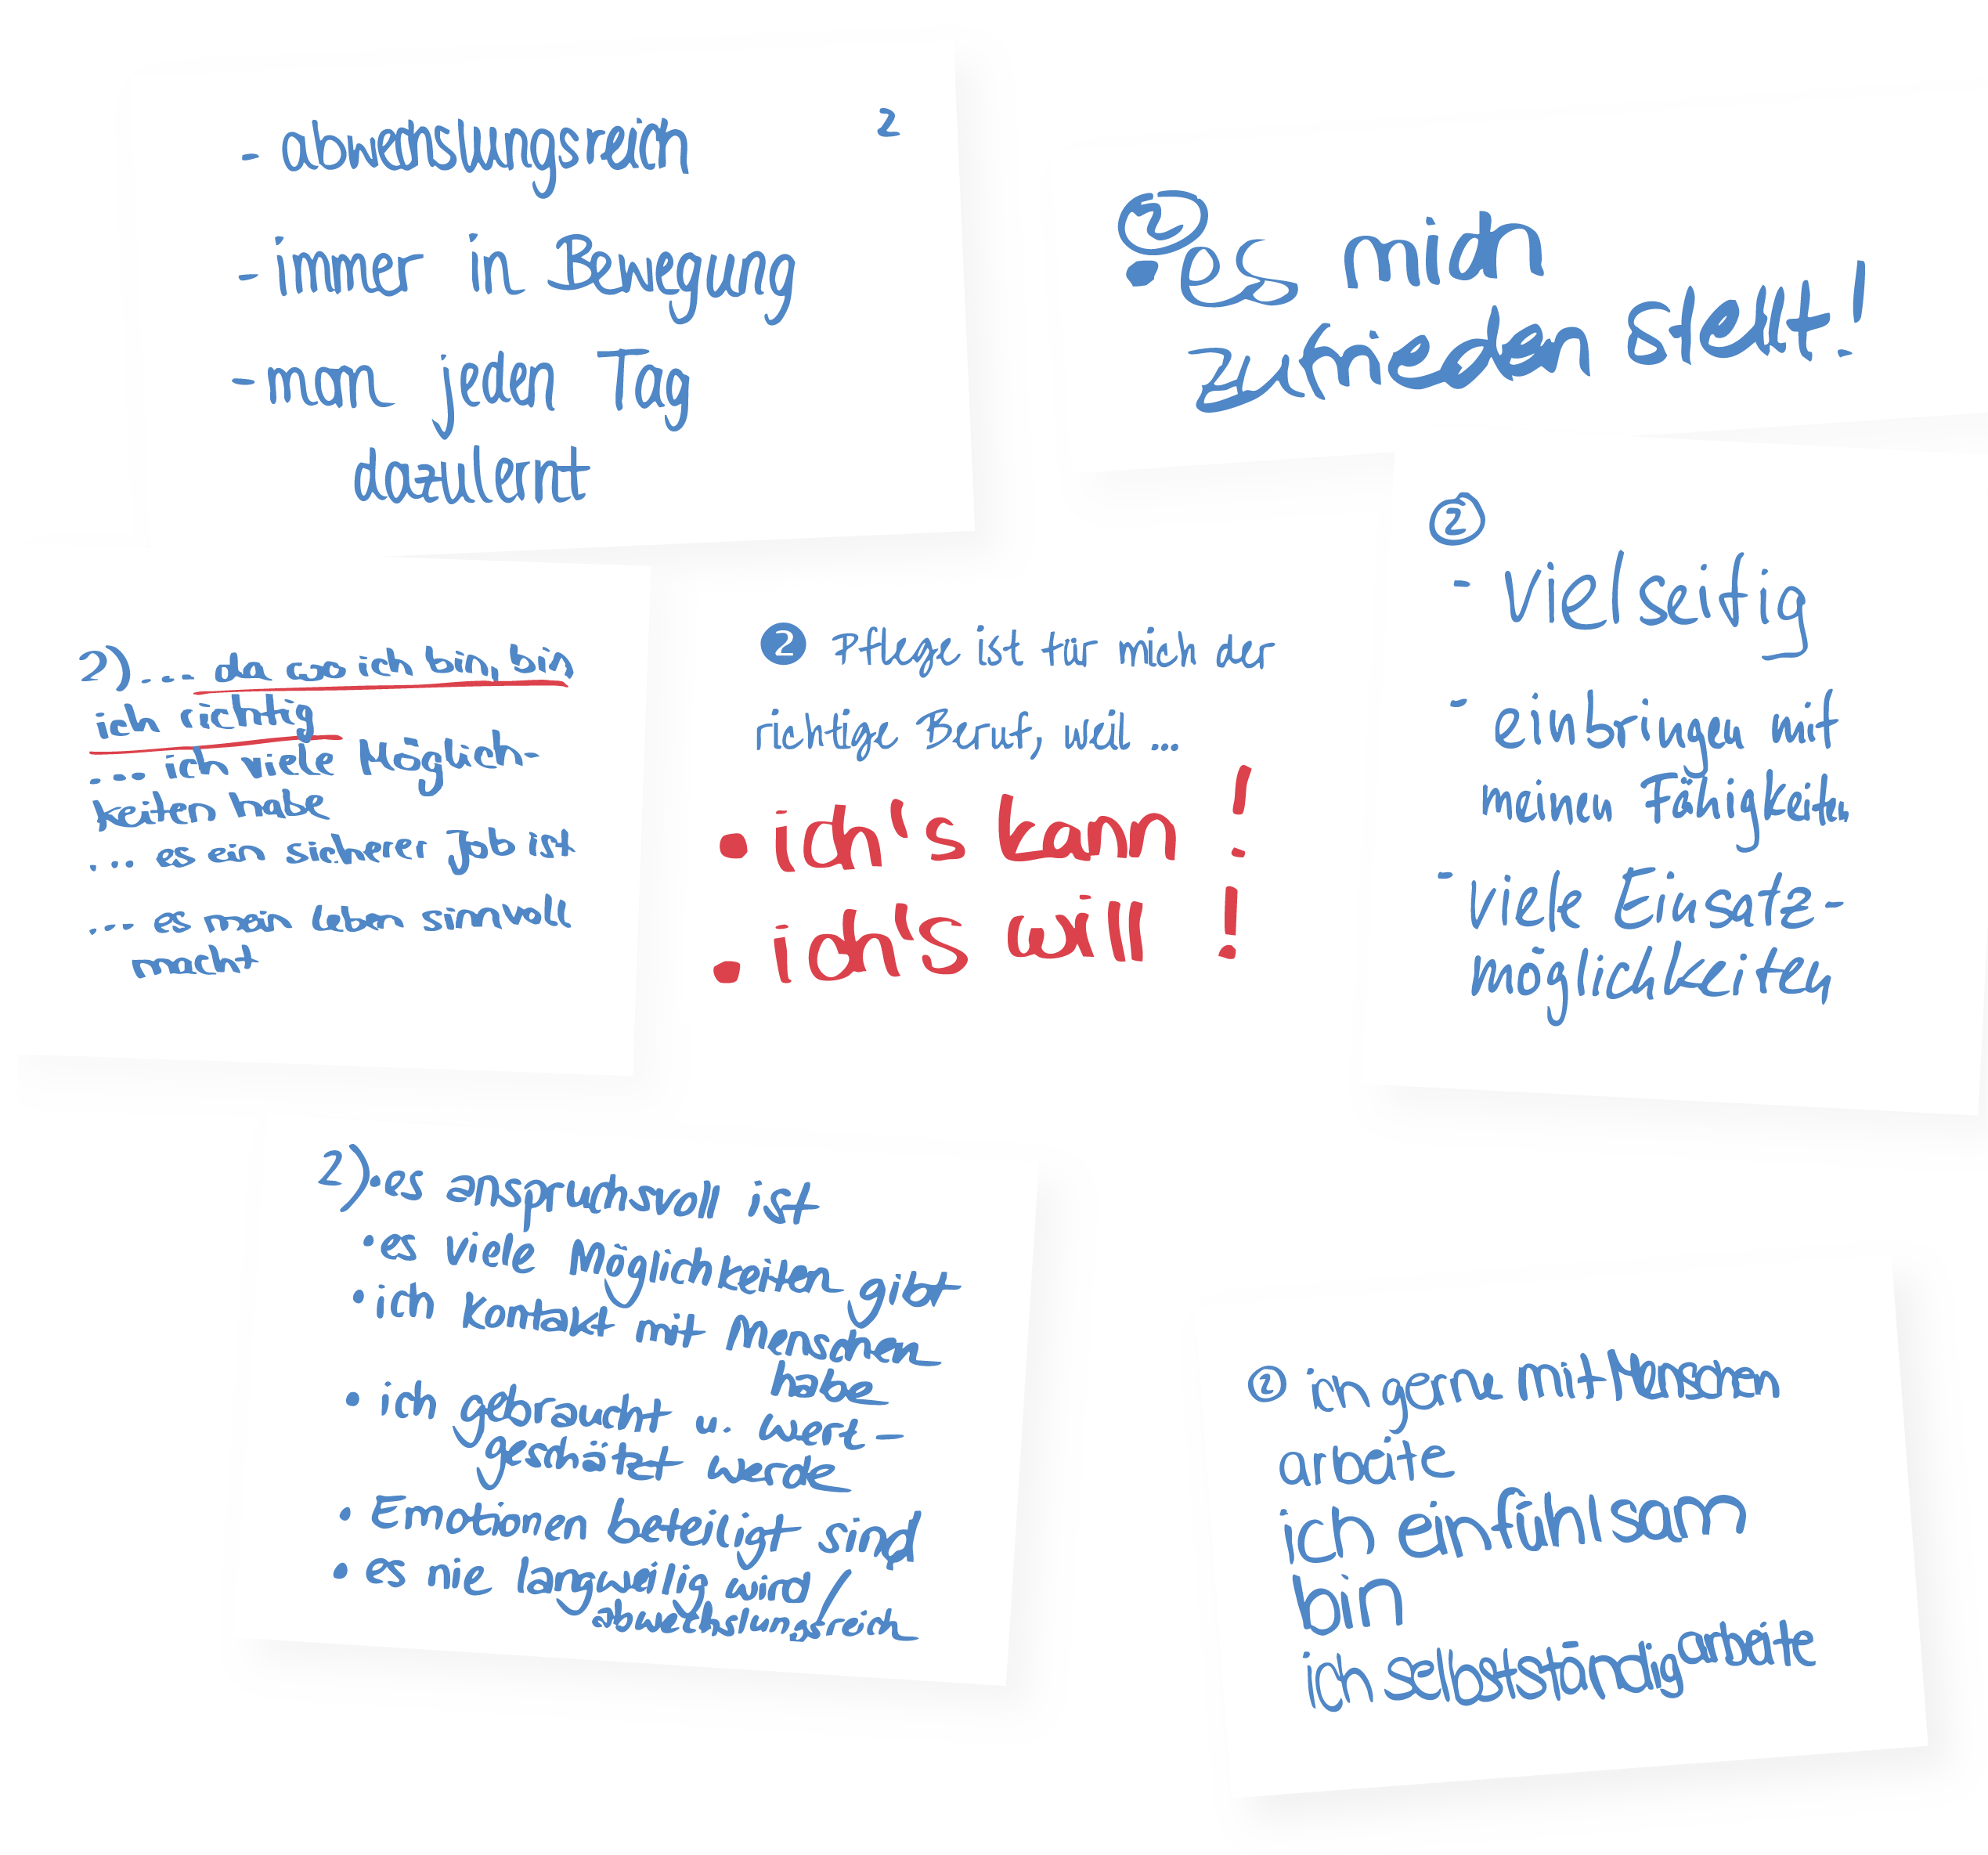 2
- abwechslungsreich
- immer in Bewegung
- man jeden Tag
dazulernt
②
• es mich
zufrieden stellt!
2) ... da wo ich bin, bin
ich richtig
... ich viele Möglich-
keiten habe
... es ein sicherer Job ist
... es mein Leben sinnvoll
macht
❷ Pflege ist für mich der
richtige Beruf, weil ...
• ich's kann!
• ich's will!
②
- vielseitig
- einbringen mit
meinen Fähigkeiten
- viele Einsatz-
möglichkeiten
2) • es anspruchsvoll ist
• es viele Möglichkeiten gibt
• ich Kontakt mit Menschen
habe
• ich gebraucht u. wert-
geschätzt werde
• Emotionen beteiligt sind
• es nie langweilig wird/
abwechslungsreich
② ich gerne mit Menschen
arbeite
ich einfühlsam
bin
ich selbstständig arbeite